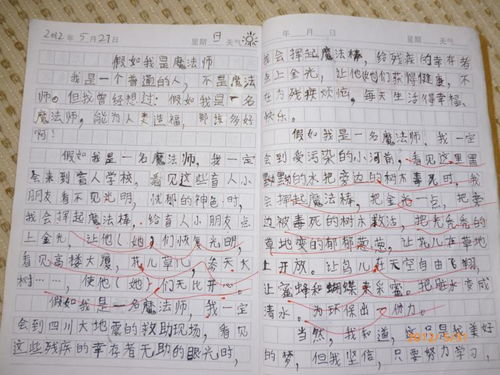 2012年5月27日 星期日 天气
假如我是魔法师
我是一个普通的人,不是魔法
师。但我曾经想过:假如我是一名
魔法师,能为人类造福,那该多好
啊!
假如我是一名魔法师,我一定
会来到盲人学校,看见这些盲人小
朋友看不见光明,忧郁的神色时,
我会挥起魔法棒,给盲人小朋友点
上金光,让他(她)们恢复光明,
看见高楼大厦,花儿草儿,参天大
树……,使他(她)们无比开心。
假如我是一名魔法师,我一定
会到四川大地震的救助现场,看见
这些残疾的幸存者无助的眼光时,
年 月 日 星期 天气
我会挥起魔法棒,给残疾的幸存者
点上金光,让他她们获得健康,不
在为残疾烦恼,每天生活得幸福、
快乐。
假如我是一名魔法师,我一定
会到受污染的小河旁,看见这里黑
黝黝的水把旁边的树木毒死时,我
会挥起魔法棒,把金光一点,把旁
边被毒死的树木救活,把光秃秃的
草地变的郁郁葱葱,让花儿在草地
上开放。让鸟儿在天空自由飞翔,
让蜜蜂和蝴蝶来采蜜。把脏水变成
清水。为环保出一份力。
当然,我知道,这只是我美好
的梦,但我坚信,只要努力学习,